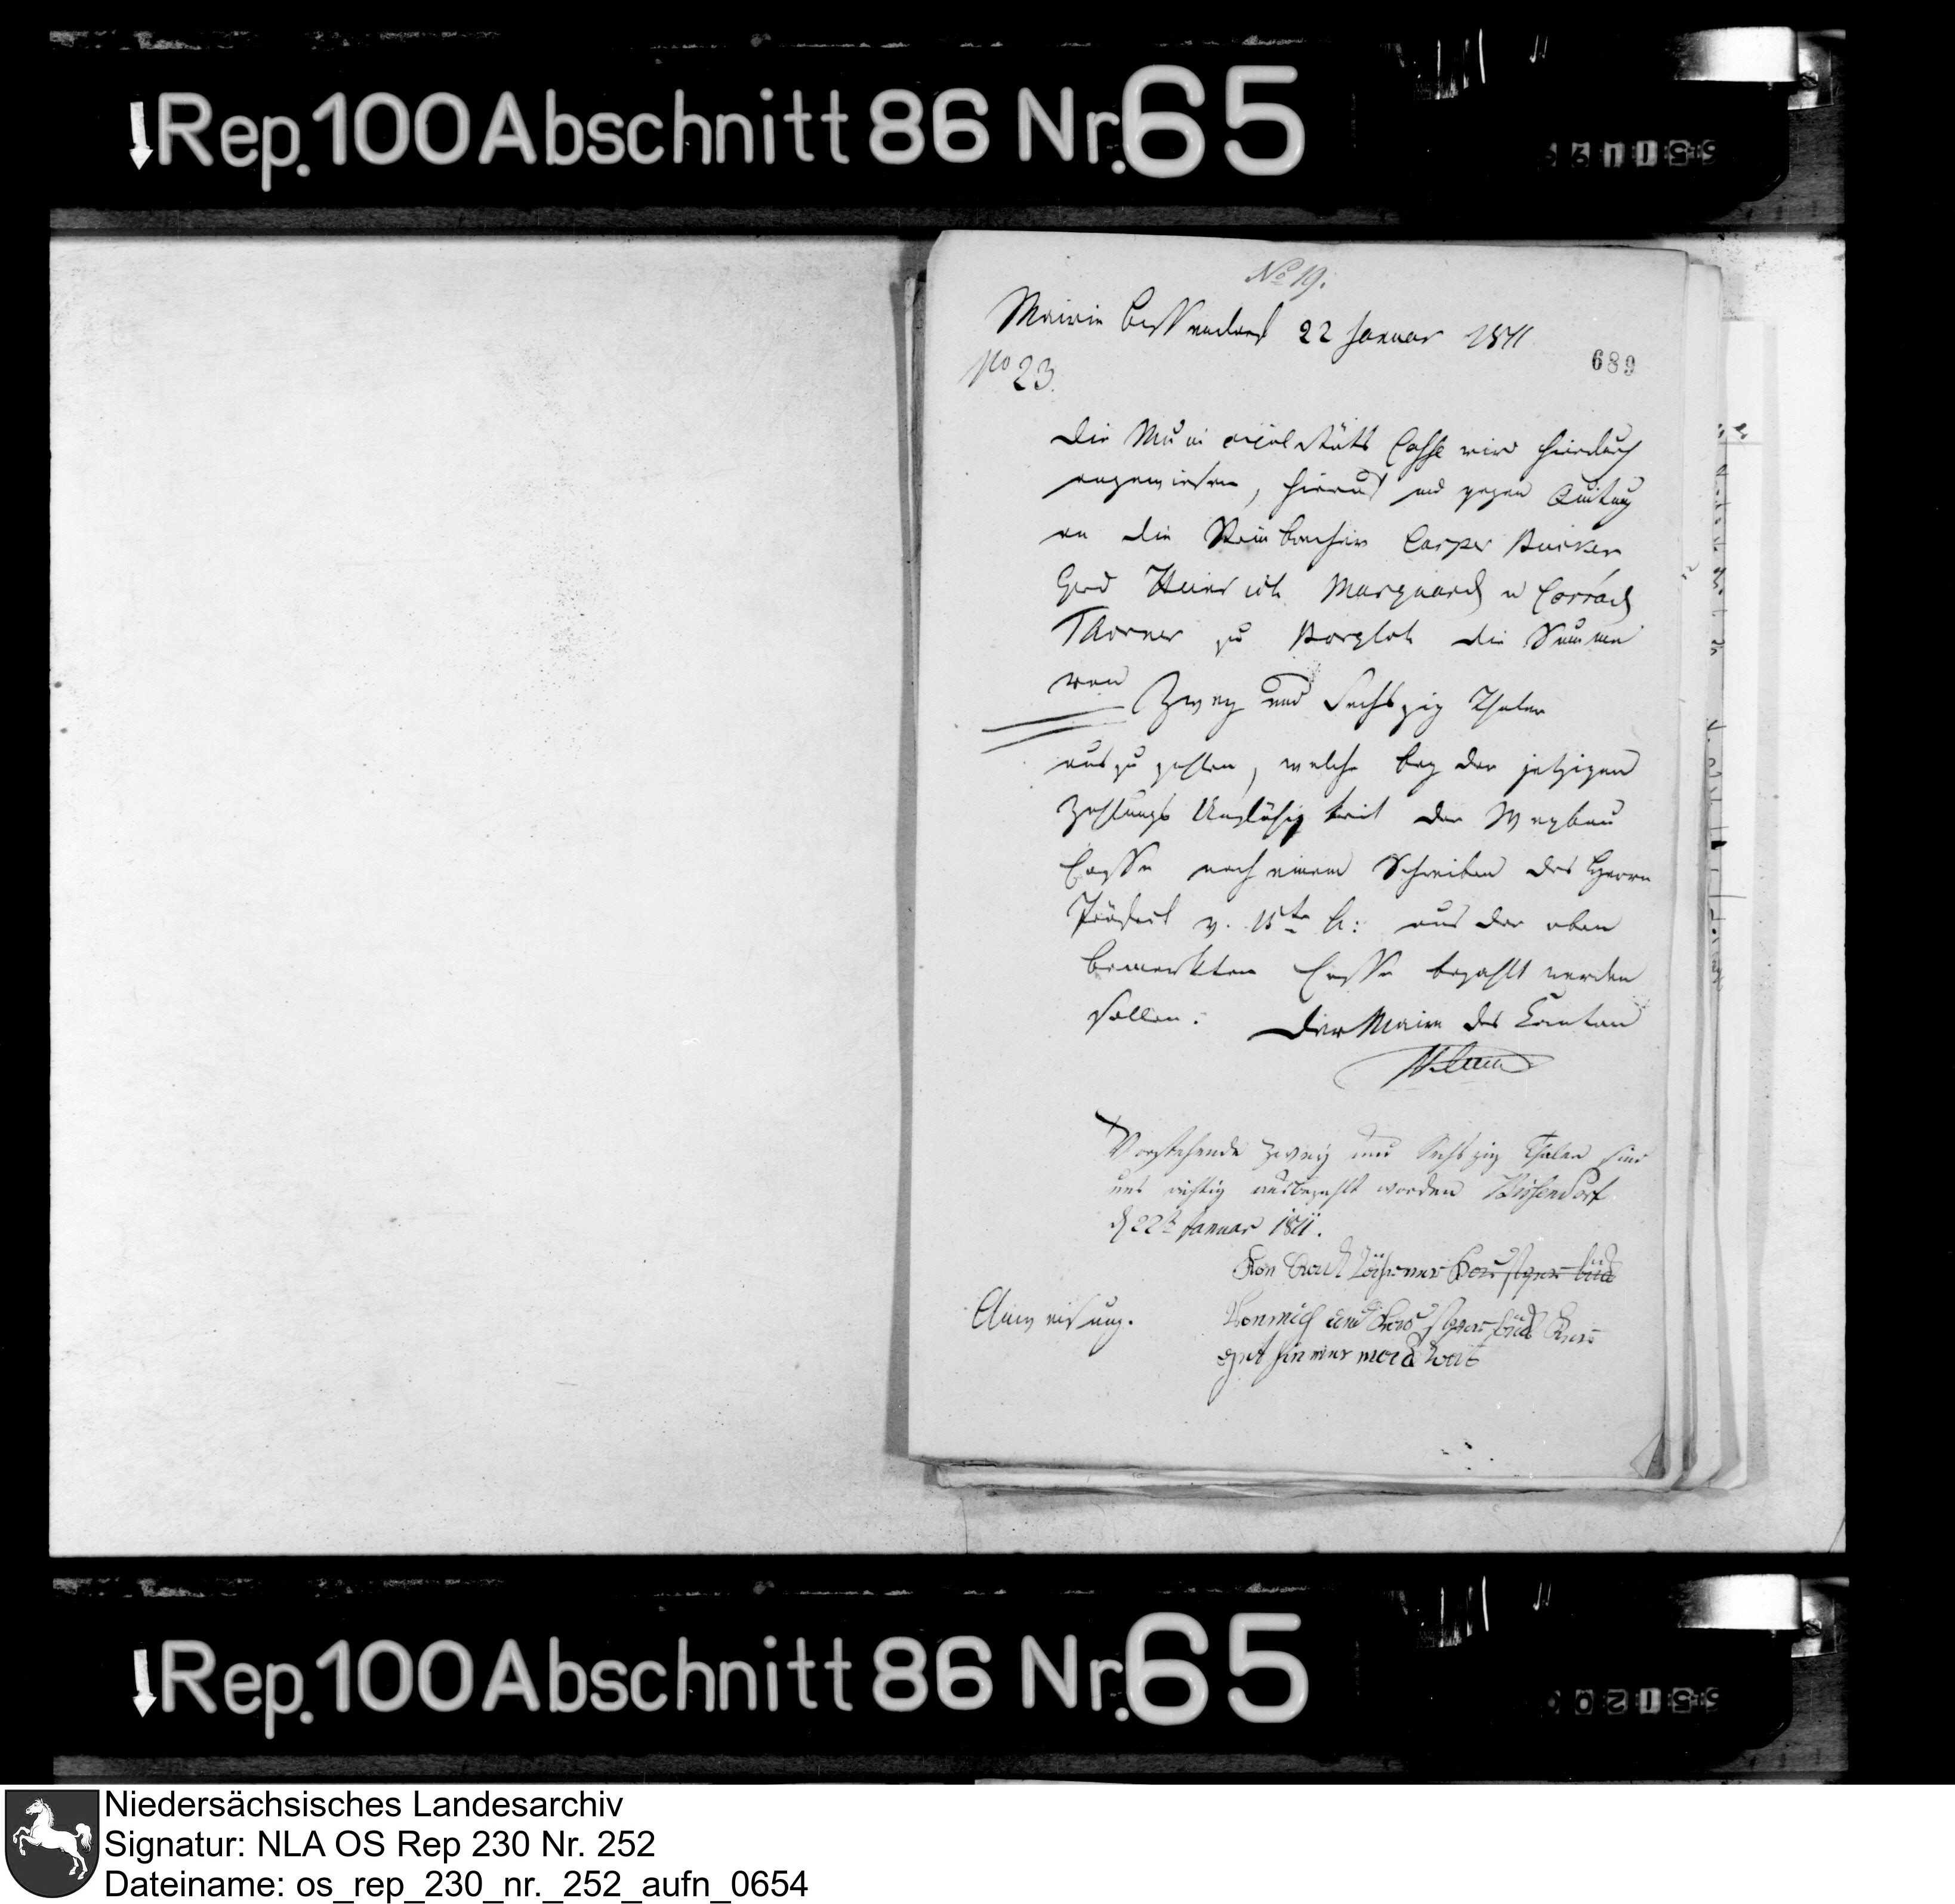 Rep. 100 Abschnitt 86 Nr. 65
No 19.
Mairie Bissendorf 22 Januar 1811
689
No 23.
Die Municipalitäts Casse wird hierdurch
angewiesen, hierauf und gegen Quitung
an die Steinbrecher Casper
Gerd Heinrich Marquard u Conrad
zu Borgloh die Summe
von Zwey und Sechszig Thaler
auszuzahlen, welche bey der jetzigen
Zahlungs Unfähigkeit der Wegbau
Casse nach einem Schreiben des Herrn
Präfect v. 15ten h: aus der oben
bemerkten Casse bezahlt werden
sollen. Der Maire des Canton
Vorstehende Zwey und Sechszig Thaler sind
uns richtig ausbezahlt worden Bissendorf
d 22t Januar 1811.
Anweisung.
Rep. 100 Abschnitt 86 Nr. 65
Niedersächsisches Landesarchiv
Signatur: NLA OS Rep 230 Nr. 252
Dateiname: os_rep_230_nr._252_aufn_0654